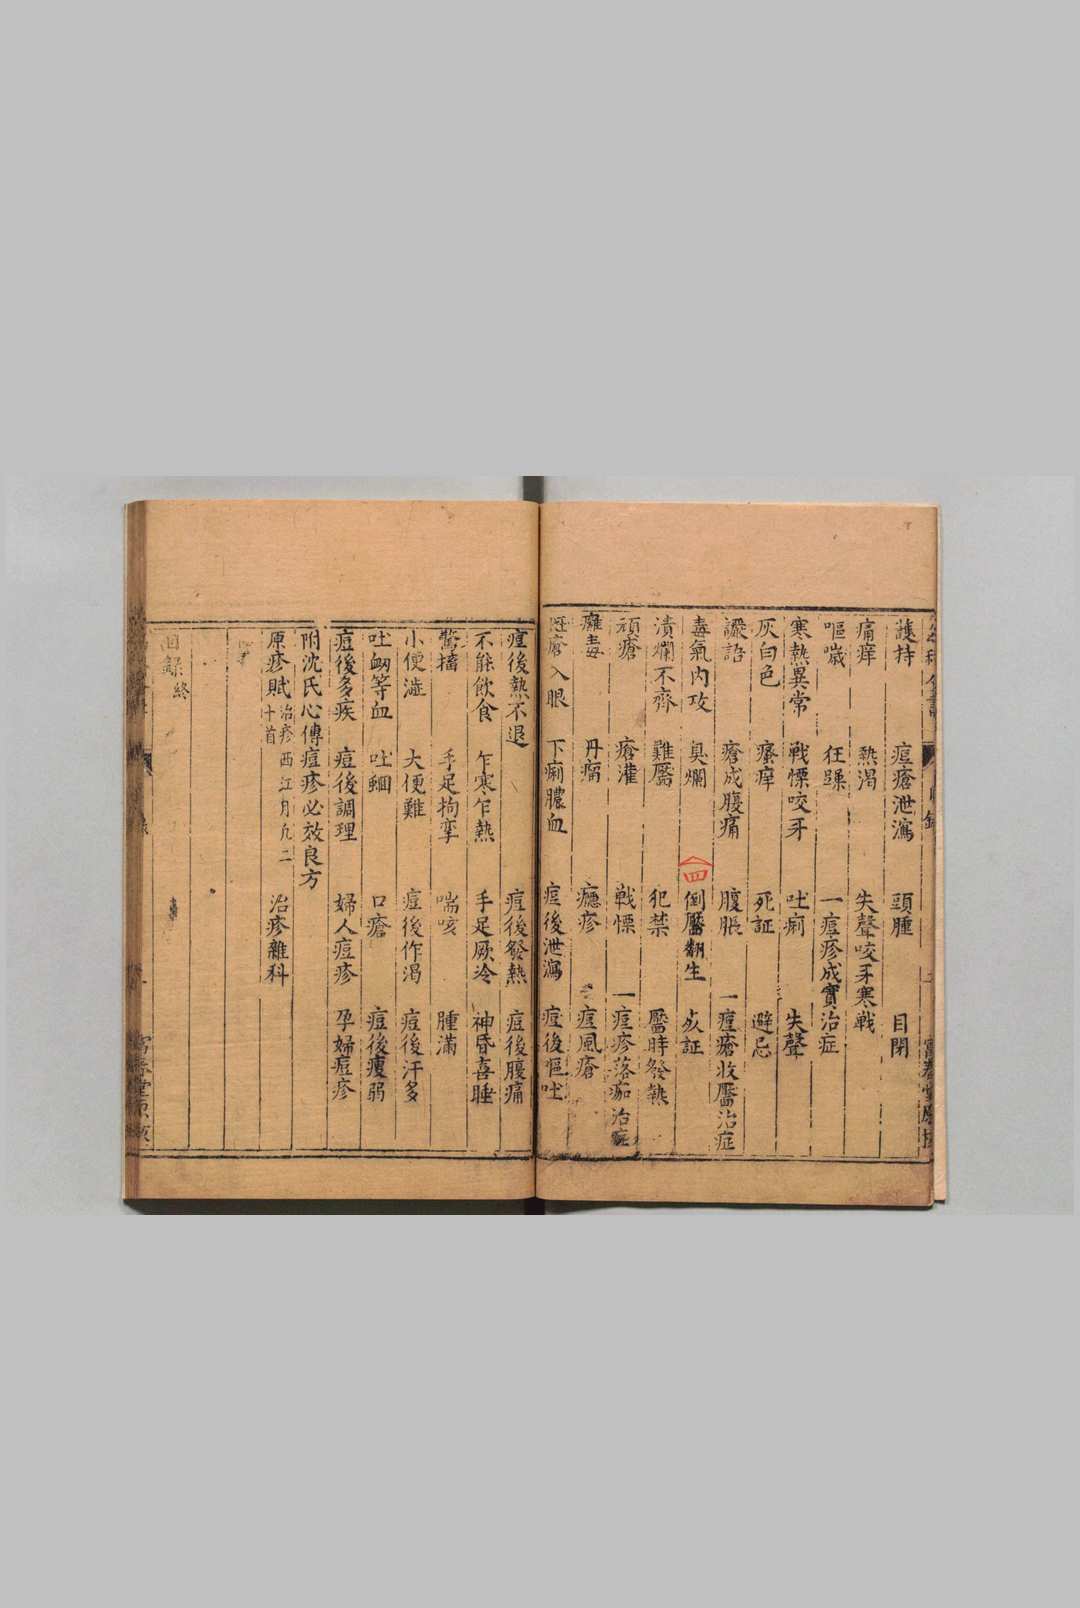 護持　痘瘡泄瀉　頭腫　目閉
痛痒　熱渴　失聲咬牙寒戰
嘔噦　狂躁　一痘疹成實治症
寒熱異常　戰慄咬牙　吐痢　失聲
灰白色　瘙痒　死証　避忌
讝語　瘡成腹痛　腹脹　一痘瘡收靨治症
毒氣內攻　臭爛　四　倒靨翻生
潰爛不齊　難靨　犯禁　靨時發熱
頑瘡　瘡灌　戰慄　一痘疹落痂治症
癰毒　丹瘤　癮疹　痘風瘡
瘡入眼　下痢膿血　痘後泄瀉　痘後嘔吐
痘後熱不退　痘後發熱　痘後腹痛
不能飲食　乍寒乍熱　手足厥冷　神昏喜睡
驚搐　手足拘攣　喘咳　腫滿
小便澁　大便難　痘後作渴　痘後汗多
吐衂等血　吐蛔　口瘡　痘後瘦弱
痘後多疾　痘後調理　婦人痘疹　孕婦痘疹
附沈氏心傳痘疹必效良方
原疹賦　治疹西江月九二十首　治疹雜科
目錄終